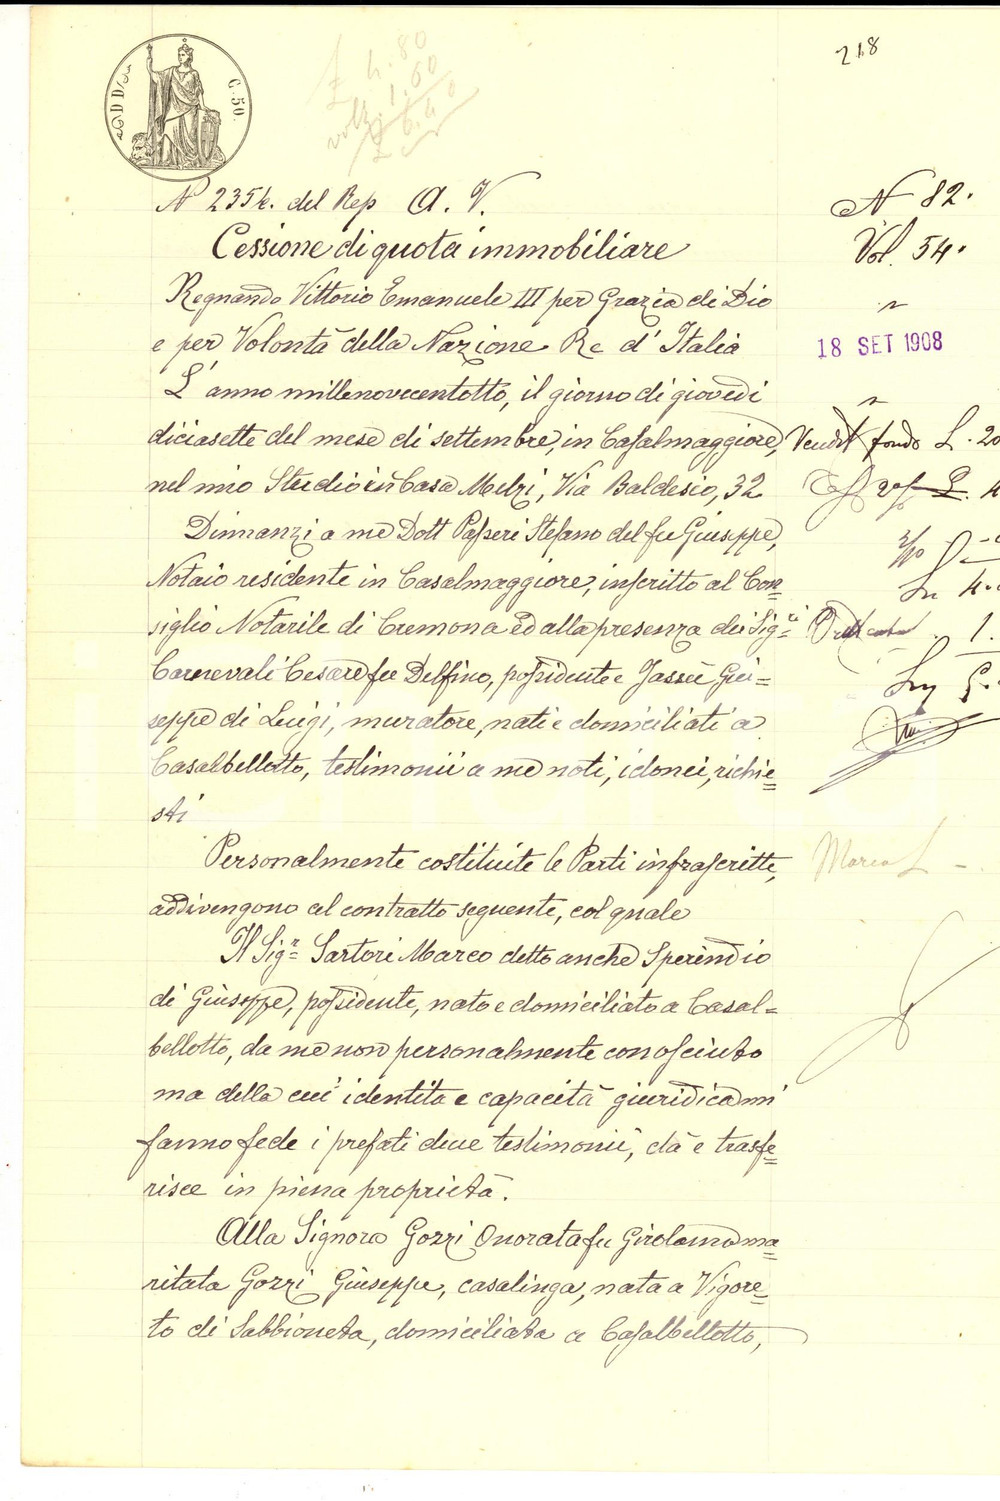 218
C. 50.
£ 4.80
1.60
£ 6.40
N° 2354. del Rep A. V.
N 82.
Cessione di quota immobiliare
Vol. 54.
Regnando Vittorio Emanuele III per Grazia di Dio
e per Volontà della Nazione Re d'Italia
18 SET 1908
L'anno millenovecentotto, il giorno di giovedì
diciasette del mese di settembre, in Casalmaggiore,
fondo L. 20
nel mio Studio in Casa Melzi, Via Baldesio, 32
Dinnanzi a me Dott Passeri Stefano del fu Giuseppe,
Notaio residente in Casalmaggiore, inscritto al Con=
siglio Notarile di Cremona ed alla presenza dei Sig.ri
Carnevali Cesare fu Delfino, possidente e Jassù Giu=
seppe di Luigi, muratore, nati e domiciliati a
Casalbellotto, testimonii a me noti, idonei, richie=
sti
Personalmente costituite le Parti infrascritte,
Marca L -
addivengono al contratto seguente, col quale
Il Sig.r Sartori Marco detto anche Sperindio
di Giuseppe, possidente, nato e domiciliato a Casal=
bellotto, da me non personalmente conosciuto
ma della cui identità e capacità giuridica mi
fanno fede i prefati due testimonii, dà e trasfe=
risce in piena proprietà.
Alla Signora Gozzi Onorata fu Girolamo ma=
ritata Gozzi Giuseppe, casalinga, nata a Vigore=
to di Sabbioneta, domiciliata a Casalbellotto,